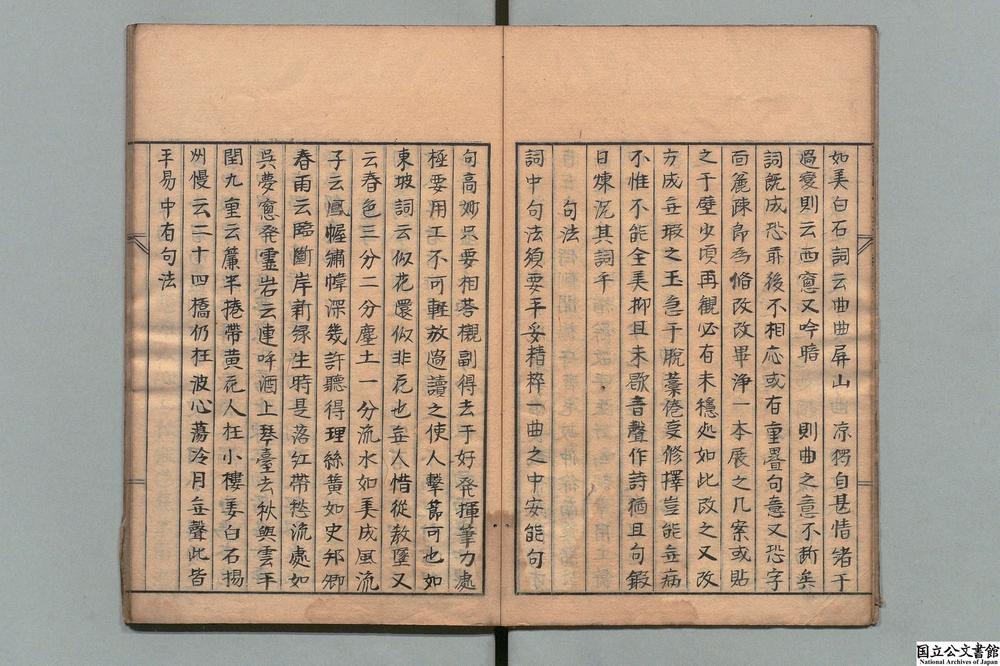 如美白石詞云曲曲屏山曲凉獨自甚情緒于
過変則云西窻又吹暗則曲之意不断矣
詞既成恐前後不相応或有重疊句意又恐字
面麁疎即為修改改畢浄一本展之几案或貼
之于壁少頃再観必有未穏処如此改之又改
方成無瑕之玉急于脱藁倦事修擇豈能無病
不惟不能全美抑且未歇音聲作詩猶且句鍛
日煉况其詞乎
句法
詞中句法須要平妥精粹一曲之中安能句
句高妙只要相荅襯副得去于好発揮筆力處
極要用工不可軽放過讀之使人撃莭可也如
東坡詞云似花還似非花也無人惜從教墜又
云春色三分二分塵土一分流水如美成風流
子云鳳幄繡幃深幾許聽得理絲簧如史邦卿
春雨云臨斷岸新緑生時是落紅帶愁流處如
呉夢窻発霊岩云連呼酒上琴臺去秋與雲平
閏九重云簾半捲帶黄花人在小樓姜白石揚
州慢云二十四橋仍在波心蕩冷月無聲此皆
平易中有句法
国立公文書館
National Archives of Japan